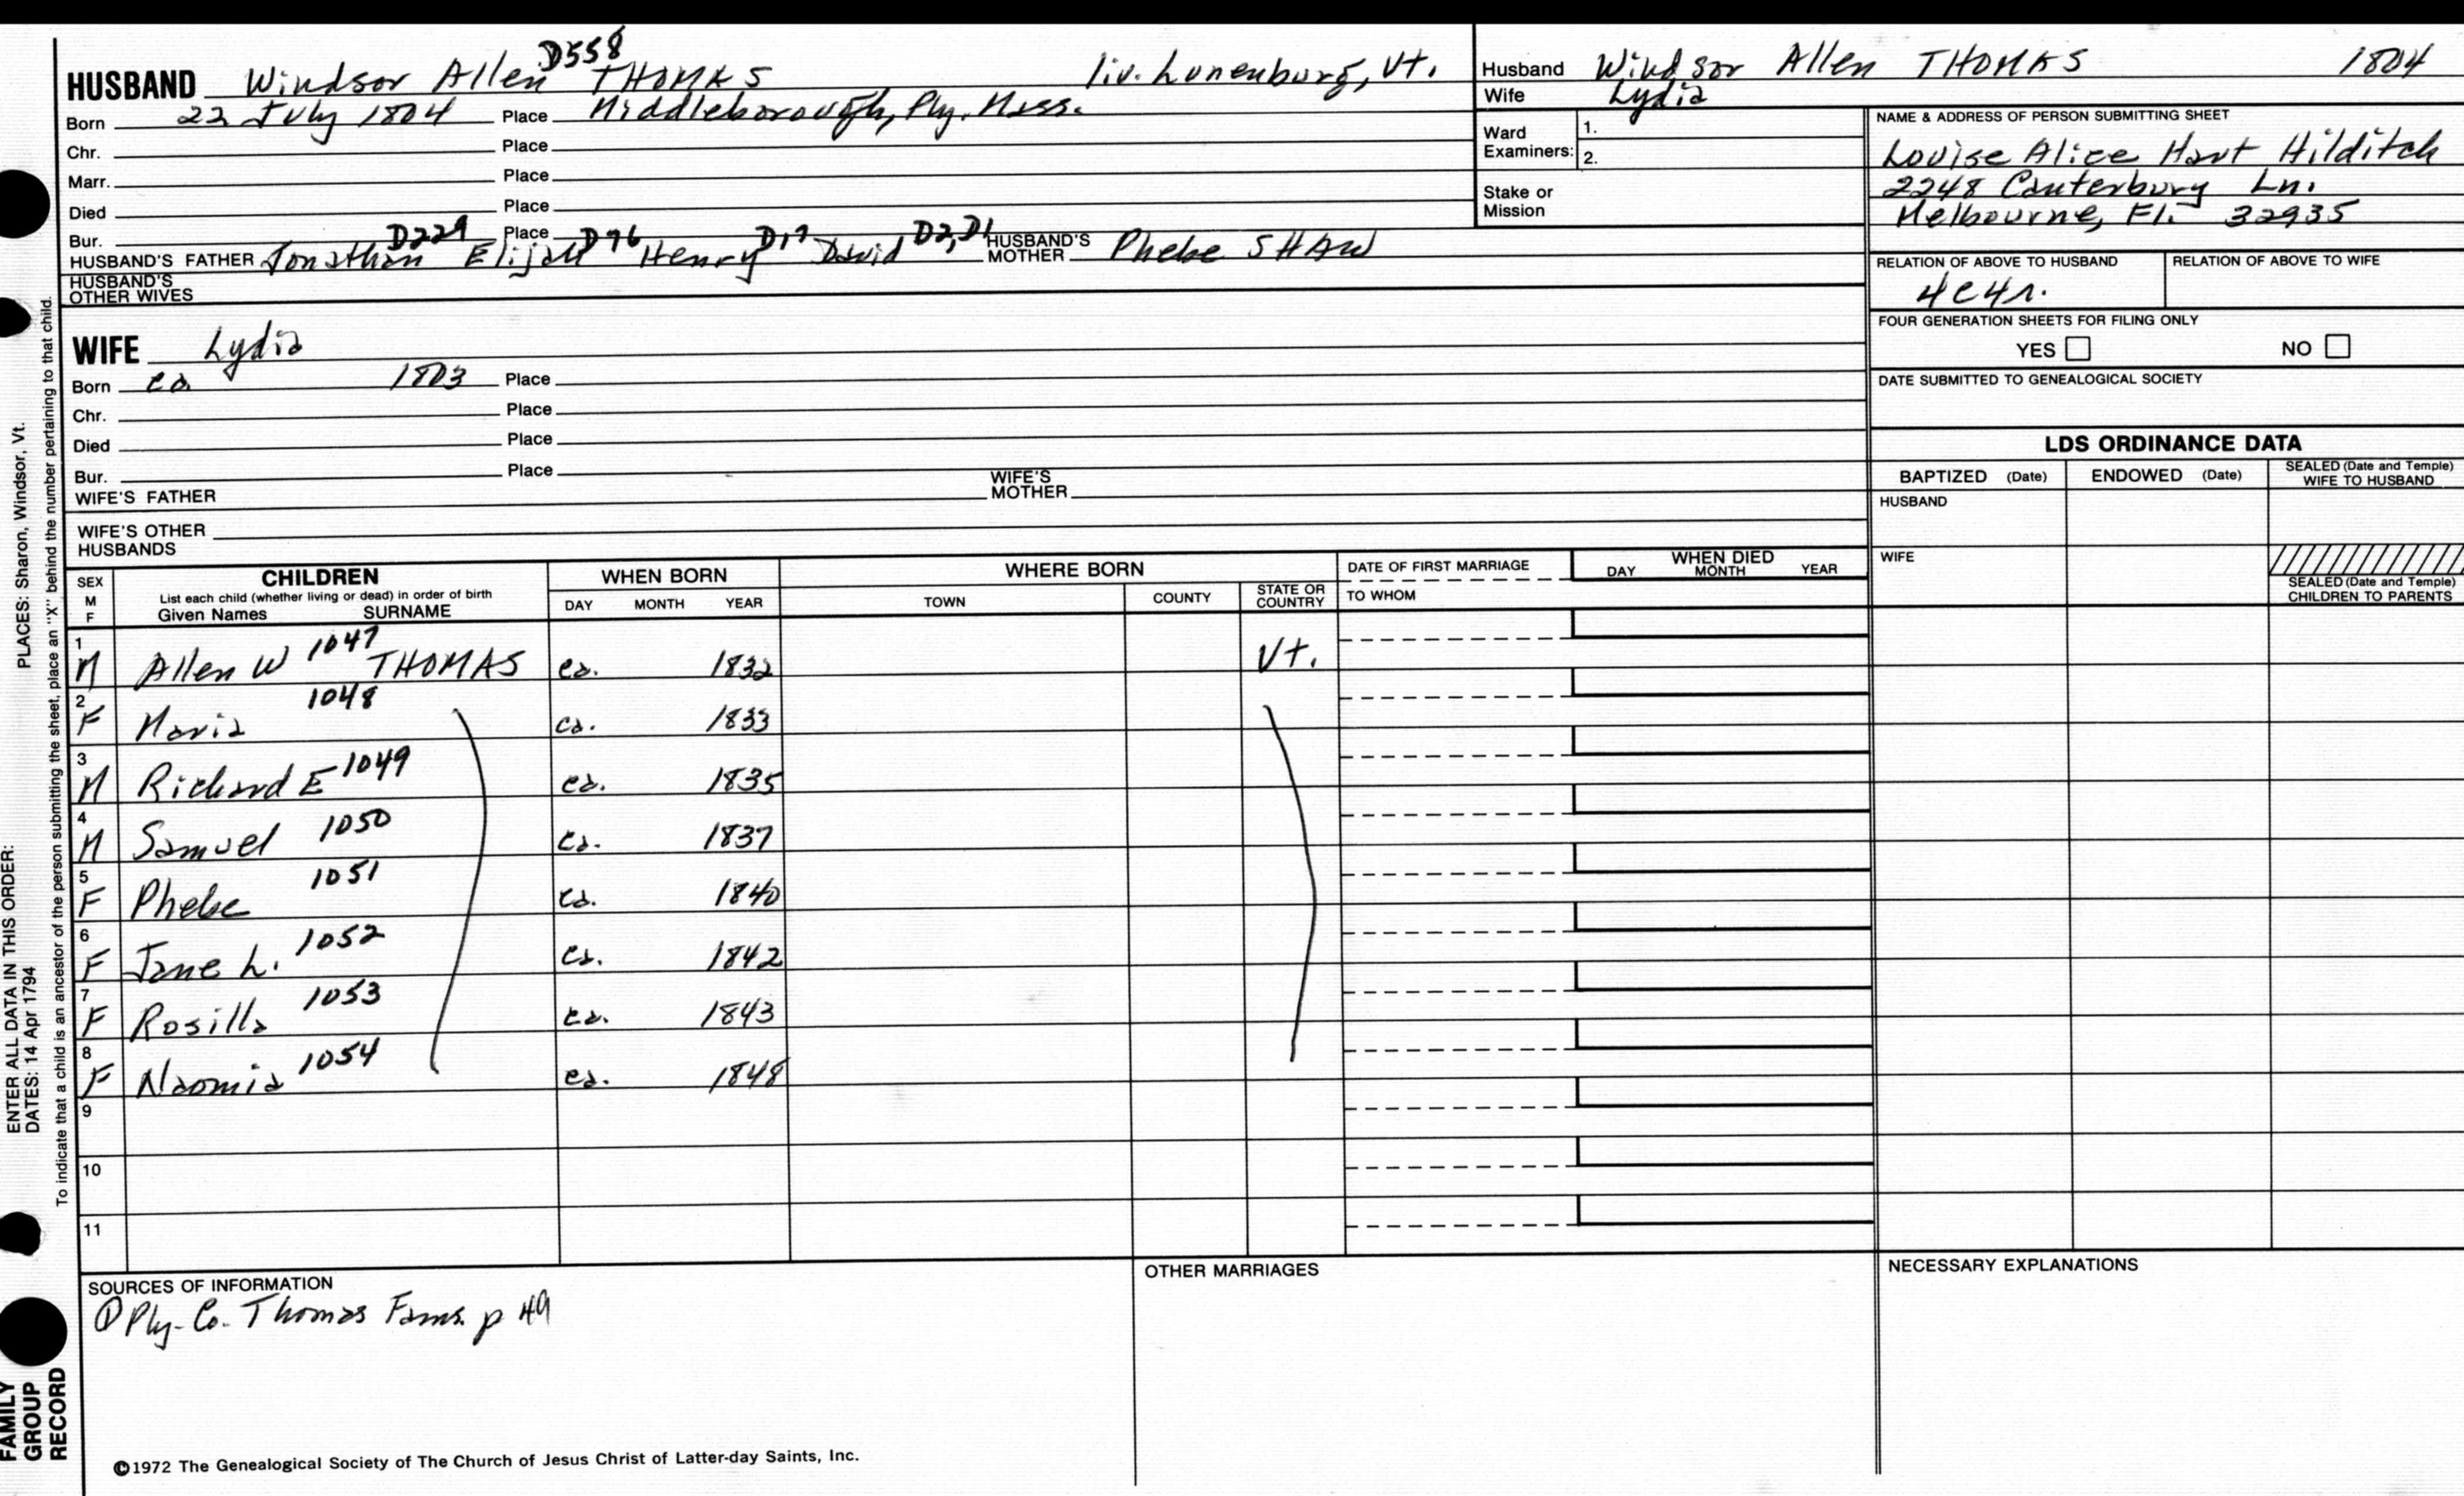 HUSBAND Windsor Allen D558 THOMAS liv. Lunenburg, Vt.
Born 22 July 1804 Place Middleborough, Ply. Mass.
Chr. Place
Marr. Place
Died Place
Bur. Place
HUSBAND'S FATHER Jonathan D229 Elijah D76 Henry D17 David D2, D1 HUSBAND'S MOTHER Phebe SHAW
HUSBAND'S OTHER WIVES
WIFE Lydia
Born ca 1803 Place
Chr. Place
Died Place
Bur. Place
WIFE'S FATHER WIFE'S MOTHER
WIFE'S OTHER HUSBANDS
Husband Windsor Allen THOMAS 1804
Wife Lydia
Ward Examiners: 1.
2.
Stake or Mission
NAME & ADDRESS OF PERSON SUBMITTING SHEET
Louise Alice Hart Hilditch
2248 Canterbury Ln.
Melbourne, Fl. 32935
RELATION OF ABOVE TO HUSBAND RELATION OF ABOVE TO WIFE
4c4r.
FOUR GENERATION SHEETS FOR FILING ONLY
YES NO
DATE SUBMITTED TO GENEALOGICAL SOCIETY
LDS ORDINANCE DATA
BAPTIZED (Date) ENDOWED (Date) SEALED (Date and Temple) WIFE TO HUSBAND
HUSBAND
WIFE
SEALED (Date and Temple) CHILDREN TO PARENTS
SEX M F CHILDREN WHEN BORN WHERE BORN DATE OF FIRST MARRIAGE WHEN DIED
List each child (whether living or dead) in order of birth
Given Names SURNAME DAY MONTH YEAR TOWN COUNTY STATE OR COUNTRY TO WHOM DAY MONTH YEAR
1 M Allen W 1047 THOMAS ca. 1832 Vt.
2 F Maria 1048 ca. 1833
3 M Richard E 1049 ca. 1835
4 M Samuel 1050 ca. 1837
5 F Phebe 1051 ca. 1840
6 F Jane L. 1052 ca. 1842
7 F Rosilla 1053 ca. 1843
8 F Naomia 1054 ca. 1848
9
10
11
SOURCES OF INFORMATION
① Ply. Co. Thomas Fams. p 49
OTHER MARRIAGES
NECESSARY EXPLANATIONS
©1972 The Genealogical Society of The Church of Jesus Christ of Latter-day Saints, Inc.
FAMILY GROUP RECORD
ENTER ALL DATA IN THIS ORDER:
DATES: 14 Apr 1794
PLACES: Sharon, Windsor, Vt.
To indicate that a child is an ancestor of the person submitting the sheet, place an "X" behind the number pertaining to that child.